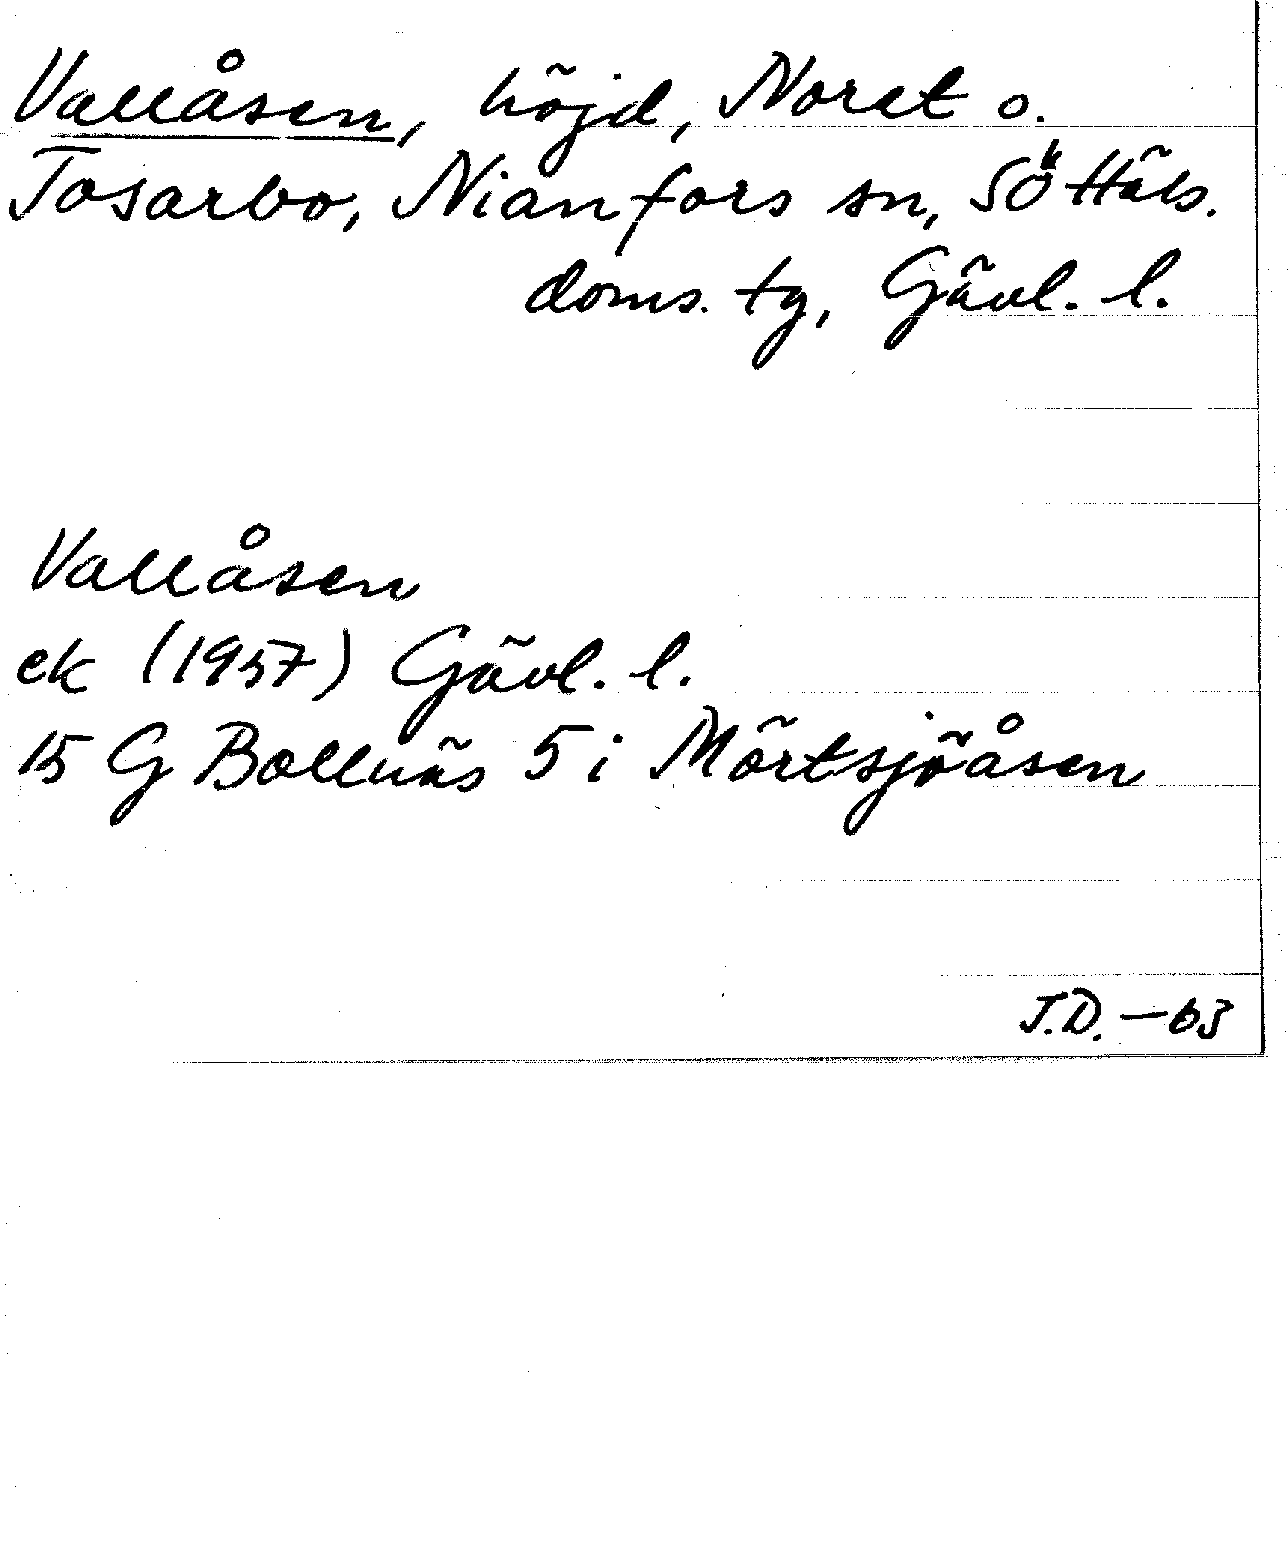 Vallåsen, höjd, Noret o.
Tosarbo, Nianfors sn, SÖ Häls.
doms. tg, Gävl. l.
Vallåsen
ek (1957) Gävl. l.
15 G Bollnäs 5 i Mörtsjöåsen
J.D. - 63